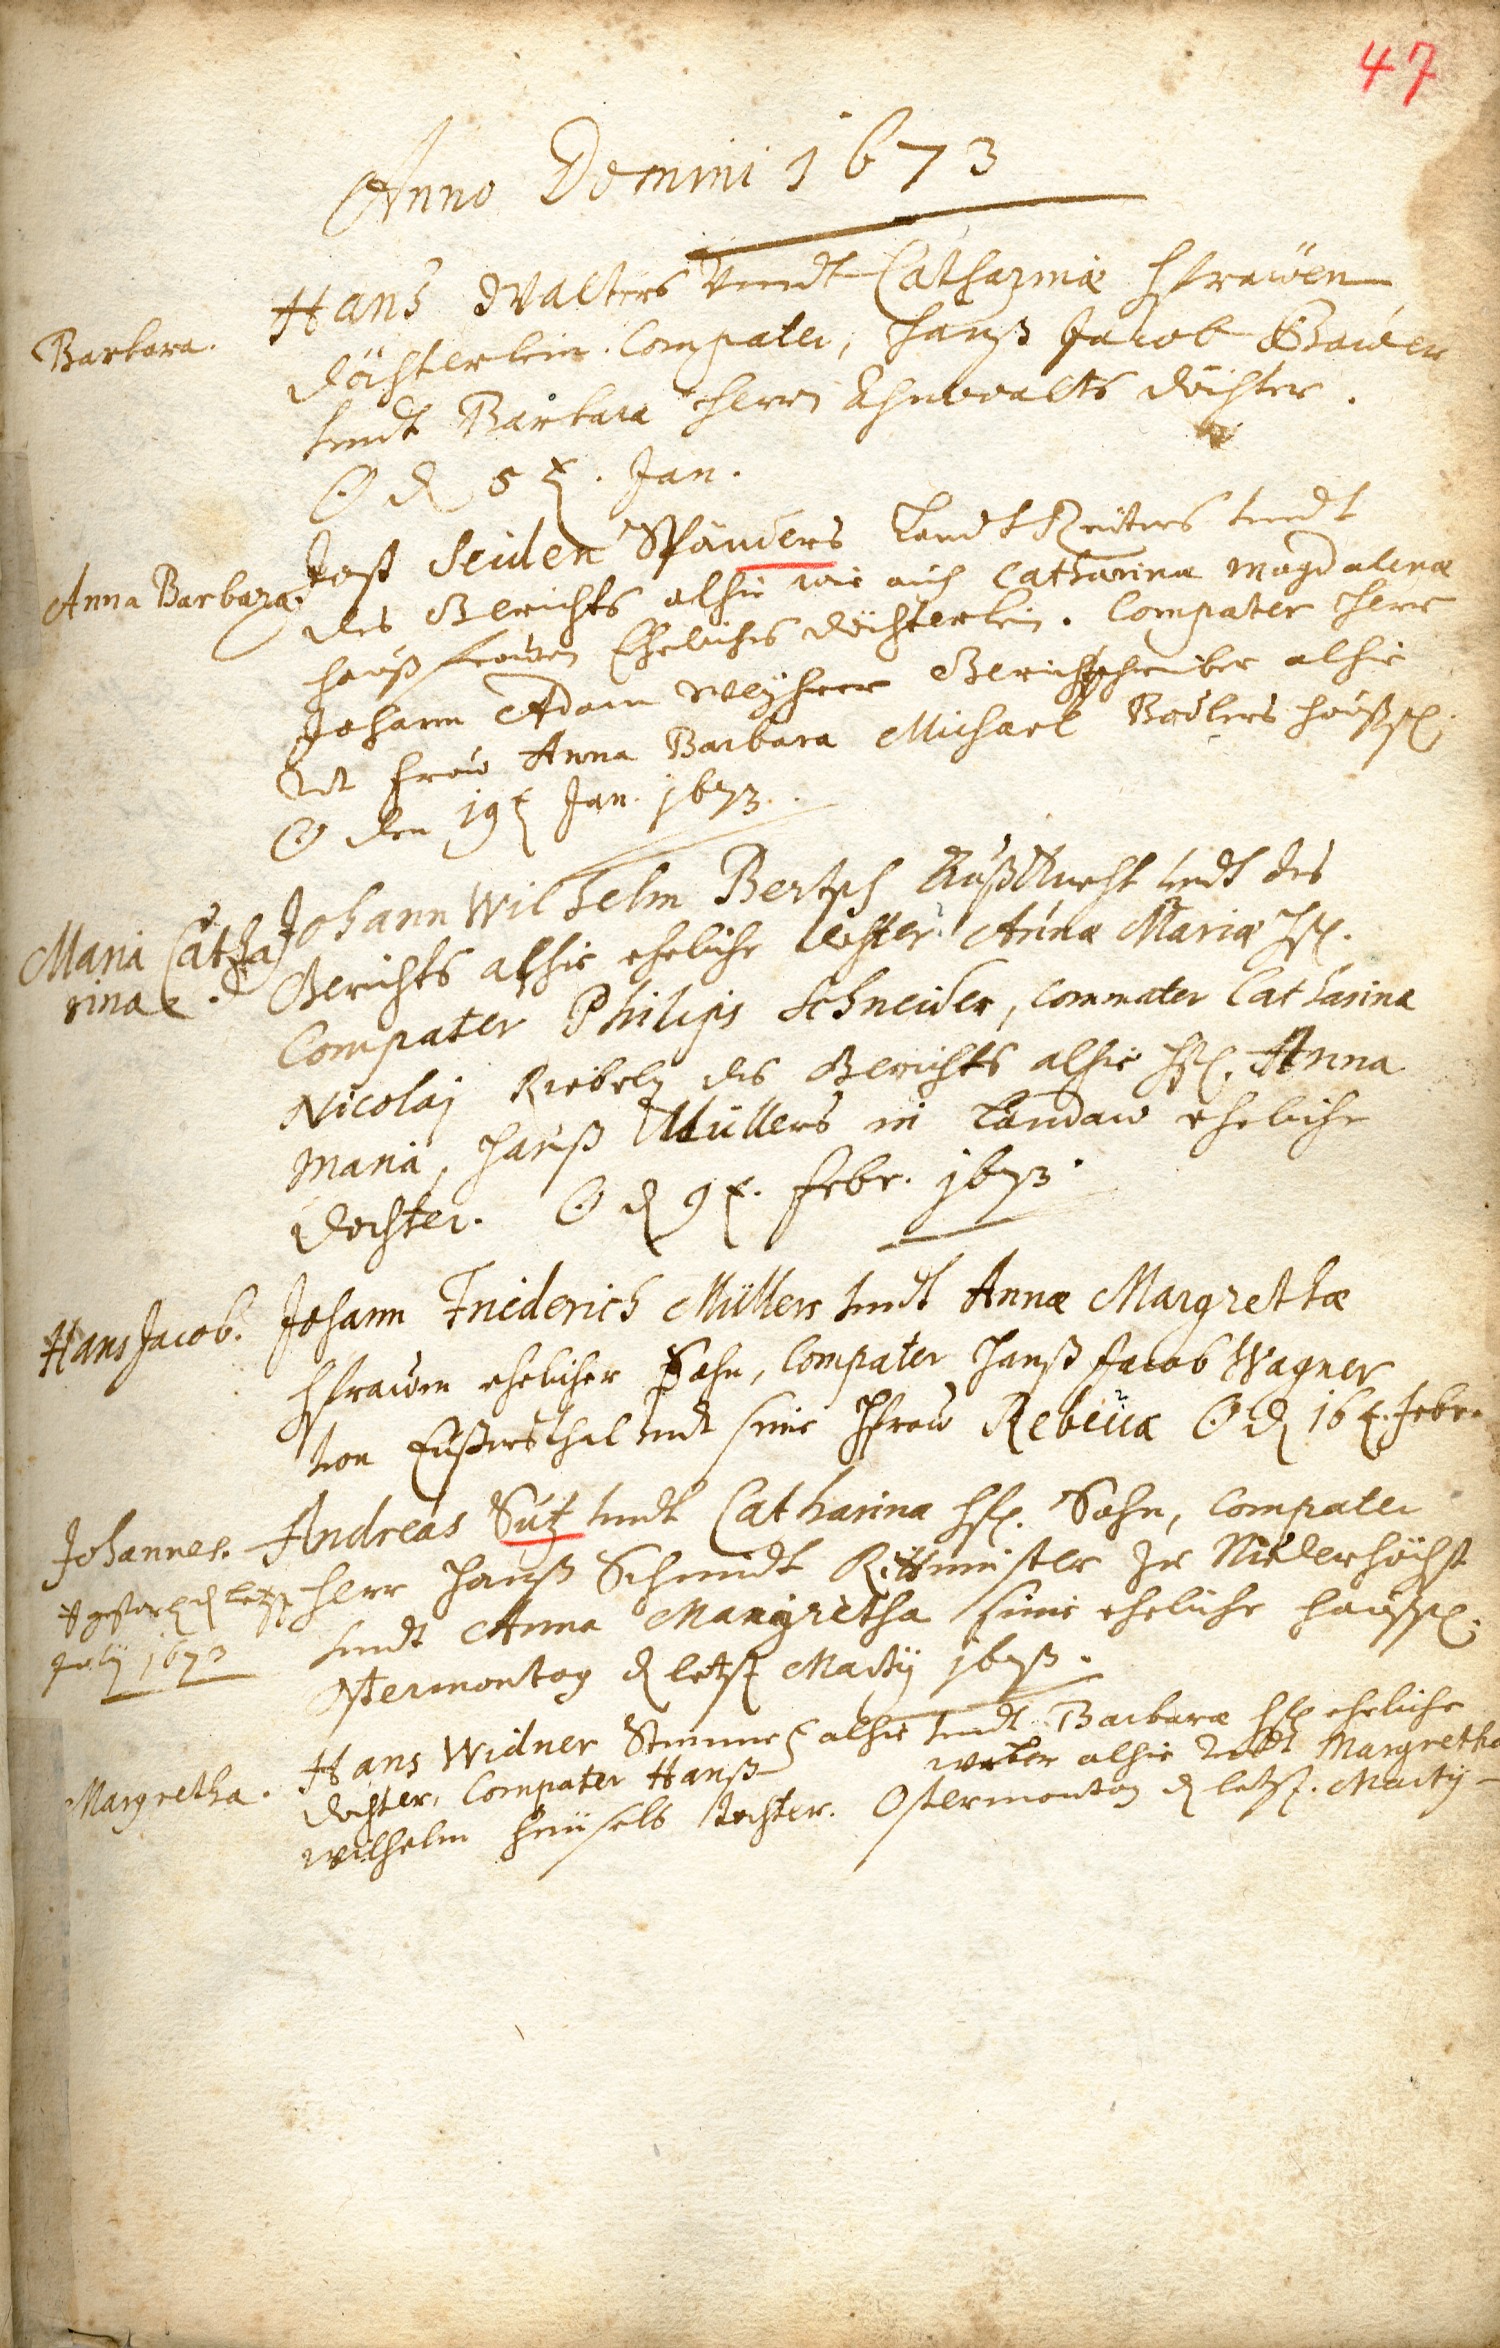 47
Anno Domini 1673
Barbara. Hans Walters vndt Catharinæ hsfrawen
döchterlein. Compater, Hanß Jacob Bawer
vndt Barbara Herrn Ehnwalts dochter.
☉ d 5 t. Jan.
Anna Barbara. Jost Seiden Spänders LandtReuters vndt
des Gerichts alhie wie auch Catharinæ Magdalenæ
haußfrawen Eheliches döchterlein. Compater Herr
Johann Adam Weyhrer Gerichtschreiber alhie
vndt fraw Anna Barbara Michael haußf.
☉ den 19t Jan. 1673.
Maria Catha Johann Wilhelm Bertsch vndt des
rinae. Gerichts alhie eheliche dochter Annæ Mariæ Hsf.
Compater Philips Schneider, Commater Catharina
Nicolaj des Gerichts alhie Hsf. Anna
Maria, Hanß Müllers in Landaw eheliche
dochter. ☉ d 9 t. Febr. 1673.
Hans Jacob. Johann Friderich Müllers vndt Annæ Margrethæ
hsfrawen ehelicher Sohn, Compater Hanß Jacob Wagner
von Eußersthal vndt seine Hsfraw Rebecca ☉ d 16 t. Febr.
Johannes. Andreas Sutz vndt Catharina hsf. Sohn, Compater
† gestorb. d letzt Herr Hanß Schmidt Rittmeister zu Niederhöchst
July 1673 vndt Anna Margretha seine eheliche haußf.
Ostermontag d letzt Martij 1673.
Margretha. Hans Widner alhie vndt Barbaræ hsf eheliche
dochter, Compater Hanß Weber alhie vndt Margretha
Wilhelm dochter. Ostermontag d letzt. Martij